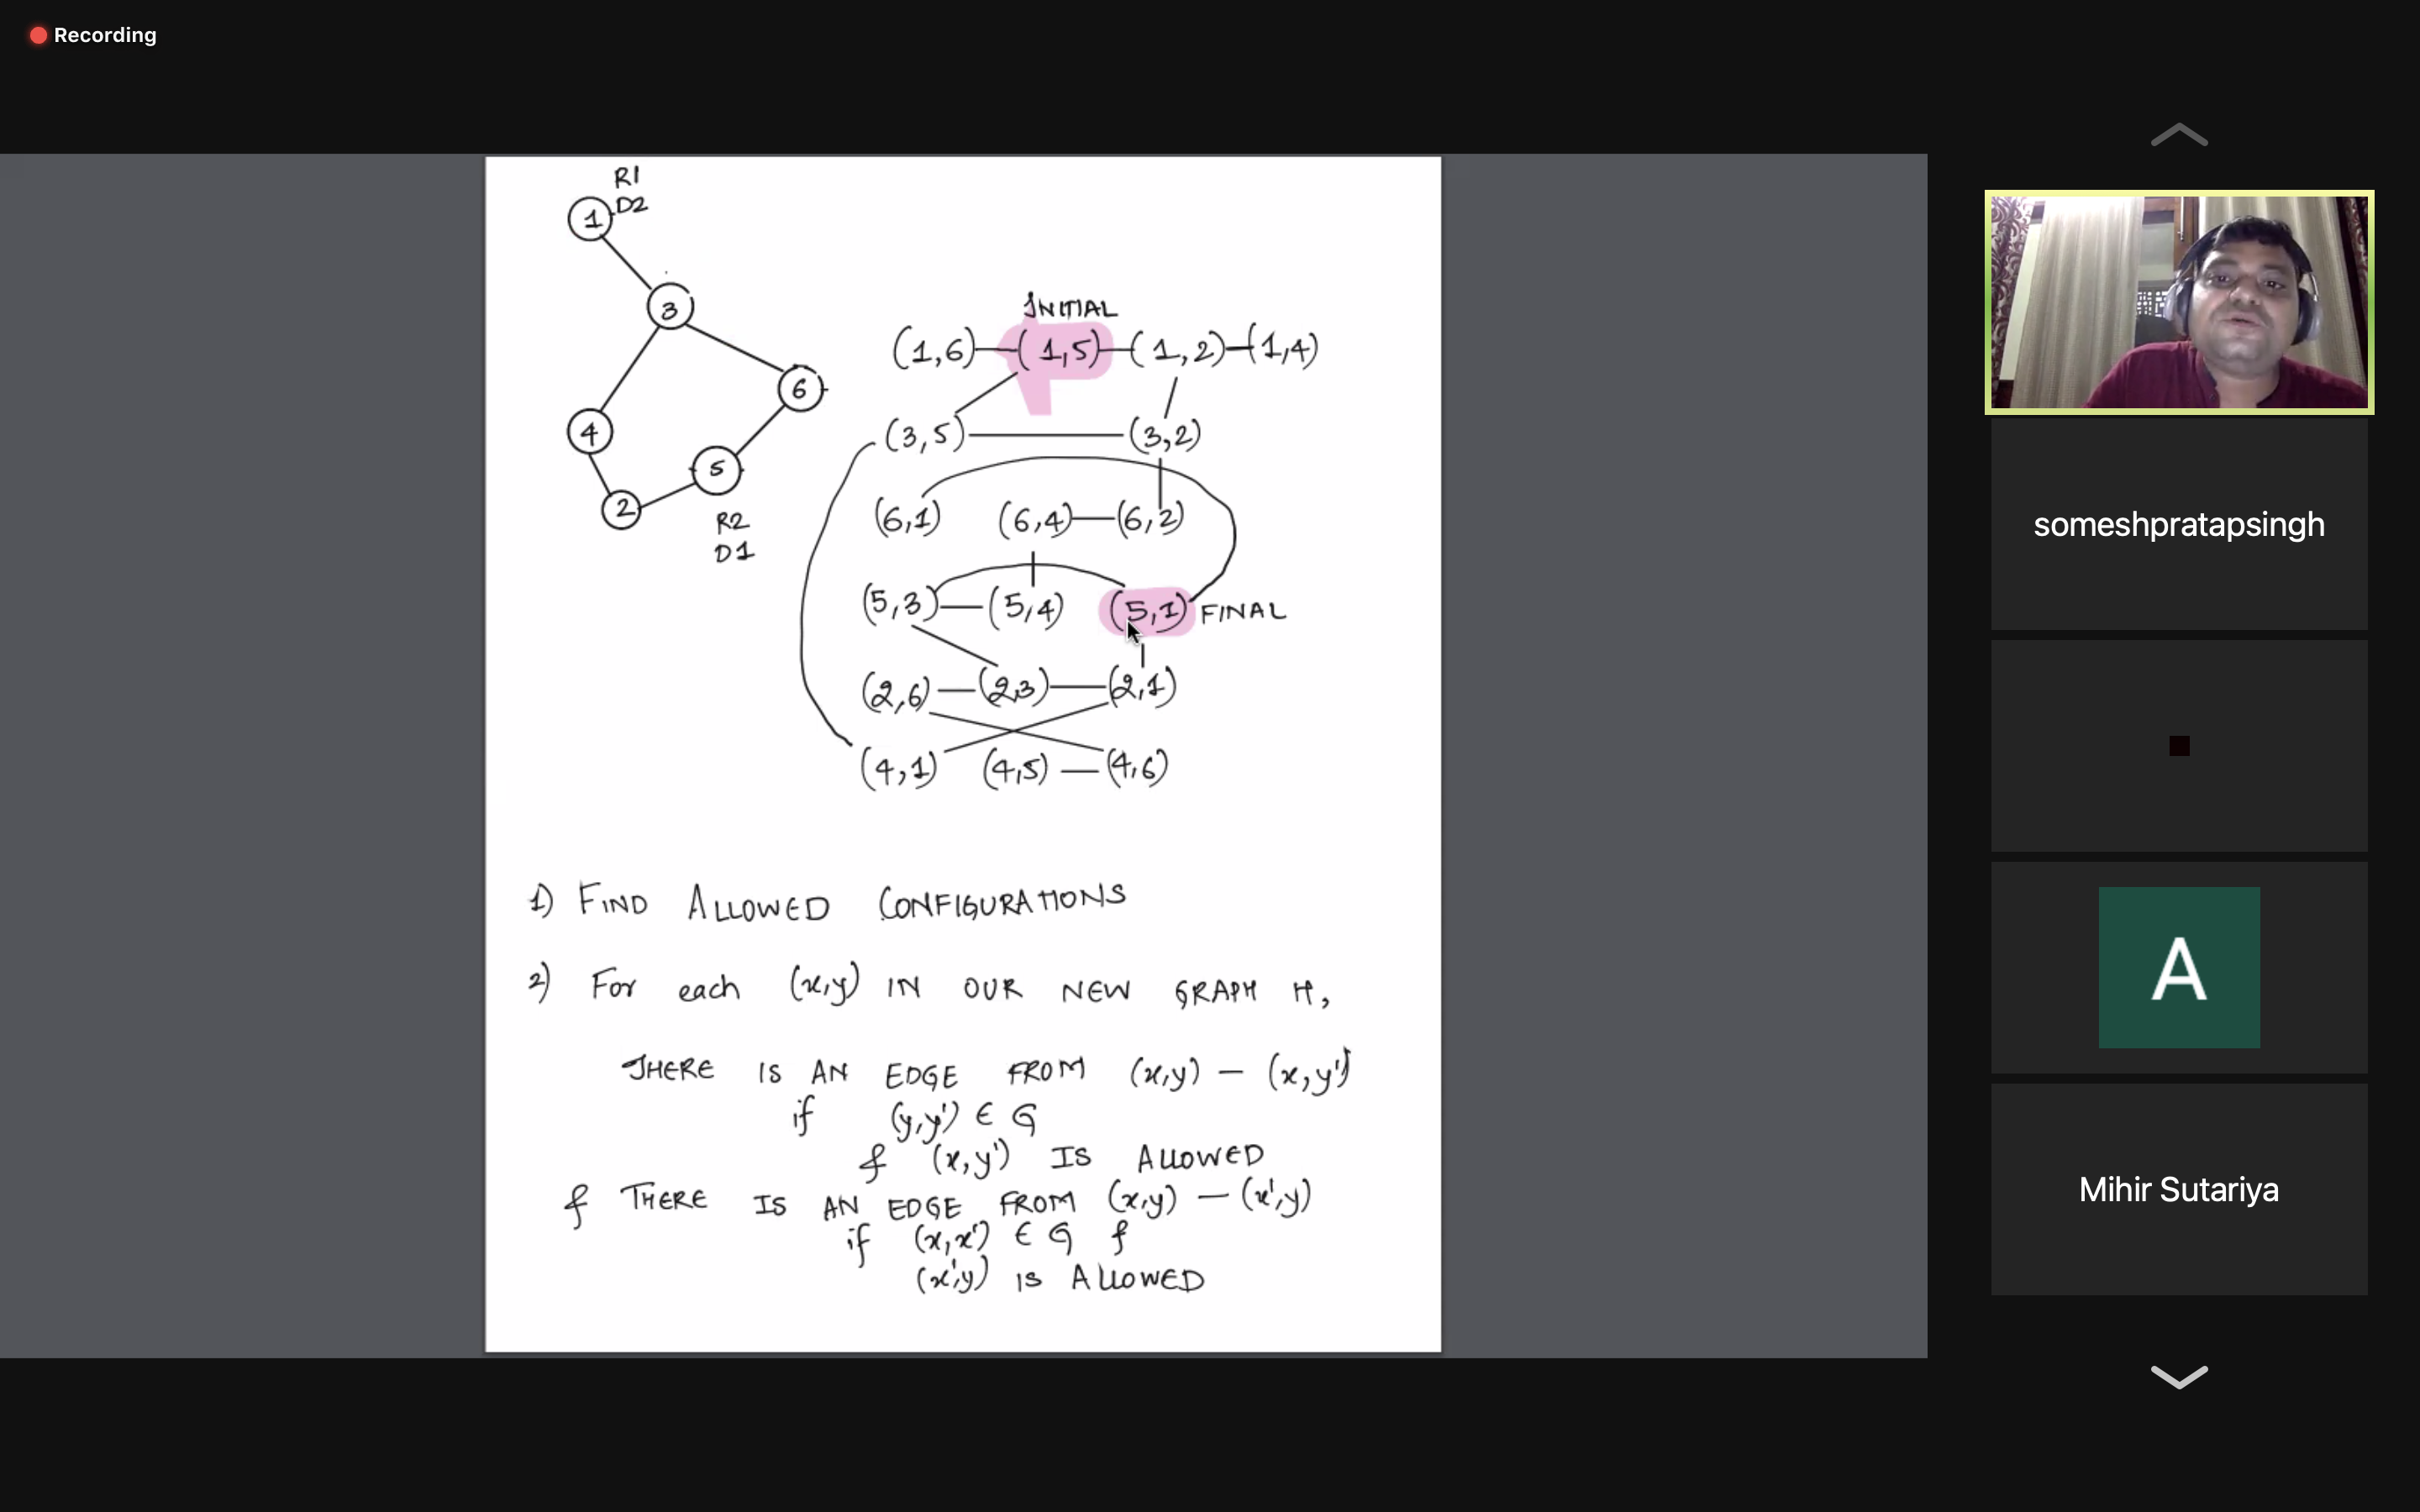 Recording
R1
1 D2
3
6
4
5
2
R2
D1
INITIAL
(1,6) — (1,5) — (1,2) — (1,4)
(3,5) — (3,2)
(6,1) (6,4) — (6,2)
(5,3) — (5,4) (5,1) FINAL
(2,6) — (2,3) — (2,1)
(4,1) (4,5) — (4,6)
1) FIND ALLOWED CONFIGURATIONS
2) For each (x,y) IN OUR NEW GRAPH H,
THERE IS AN EDGE FROM (x,y) — (x,y')
if (y,y') ∈ G
& (x,y') IS ALLOWED
& THERE IS AN EDGE FROM (x,y) — (x',y)
if (x,x') ∈ G &
(x',y) IS ALLOWED
someshpratapsingh
A
Mihir Sutariya